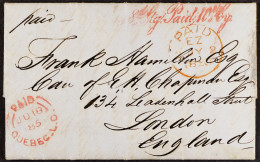 paid
Pkg. Paid 10 Stg.
PAID
EZ
Frank Hamilton Esq
Care of E. H. Chapman Esq
134 Leadenhall Street
London
England
PAID
JU 18
QUEBEC. L.C.